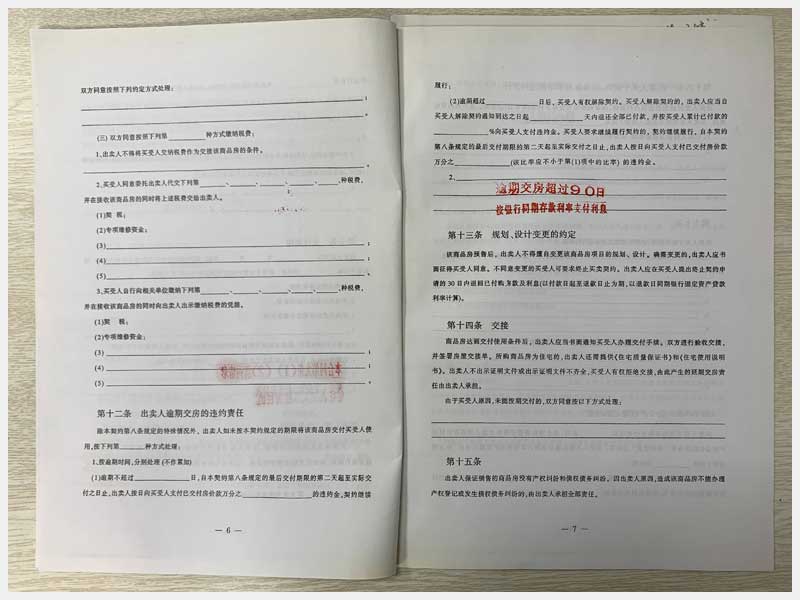 双方同意按照下列约定方式处理：
；
。
(三) 双方同意按照下列第____种方式缴纳税费：
1.出卖人不得将买受人交纳税费作为交接该商品房的条件。
2.买受人同意委托出卖人代交下列第____、____、____、____、____种税费，
并在接收该商品房的同时将上述税费交给出卖人。
(1)契 税；
(2)专项维修资金；
(3)____；
(4)____；
(5)____。
3.买受人自行向相关单位缴纳下列第____、____、____、____、____种税费，
并在接收该商品房的同时向出卖人出示缴纳税费的凭据。
(1)契 税；
(2)专项维修资金；
(3)____；
(4)____；
(5)____。
第十二条 出卖人逾期交房的违约责任
除本契约第八条规定的特殊情况外，出卖人如未按本契约规定的期限将该商品房交付买受人使
用，按下列第____种方式处理：
1.按逾期时间，分别处理(不作累加)
(1)逾期不超过____日，自本契约第八条规定的最后交付期限的第二天起至实际交
付之日止，出卖人按日向买受人支付已交付房价款万分之____的违约金，契约继续
— 6 —
履行；
(2)逾期超过____日后，买受人有权解除契约。买受人解除契约的，出卖人应当自
买受人解除契约通知到达之日起____天内退还全部已付款，并按买受人累计已付款的
____%向买受人支付违约金。买受人要求继续履行契约的，契约继续履行，自本契约
第八条规定的最后交付期限的第二天起至实际交付之日止，出卖人按日向买受人支付已交付房价款
万分之____(该比率应不小于第(1)项中的比率) 的违约金。
2.____
逾期交房超过90日
按银行同期存款利率支付利息
第十三条 规划、设计变更的约定
该商品房预售后，出卖人不得擅自变更该商品房项目的规划、设计。确需变更的，出卖人应书
面征得买受人同意。不同意变更的买受人可要求终止买卖契约。出卖人应在买受人提出终止契约申
请的30日内退回已付购房款及利息(以付款日起至退款日止为期，以退款日同期银行固定资产贷款
利率计算)。
第十四条 交接
商品房达到交付使用条件后，出卖人应当书面通知买受人办理交付手续。双方进行验收交接，
并签署房屋交接单。所购商品房为住宅的，出卖人还需提供《住宅质量保证书》和《住宅使用说明
书》。出卖人不出示证明文件或出示证明文件不齐全，买受人有权拒绝交接，由此产生的延期交房责
任由出卖人承担。
由于买受人原因，未能按期交付的，双方同意按以下方式处理：
第十五条
出卖人保证销售的商品房没有产权纠纷和债权债务纠纷。因出卖人原因，造成该商品房不能办理
产权登记或发生债权债务纠纷的，由出卖人承担全部责任。
— 7 —